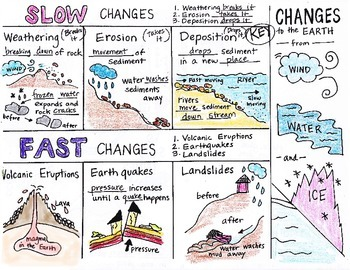 SLOW CHANGES
1. Weathering breaks it
2. Erosion takes it
3. Deposition drops it
KEY
Weathering (Breaks it)
breaking down of rock
WIND
frozen water
expands and
rock cracks
before
after
Erosion (Takes it)
movement of
sediment
water washes
sediments
away
Deposition (Drops it)
drops sediment
in a new place
Fast moving
River
Slow moving
Rivers
move sediment
down stream
FAST CHANGES
1. Volcanic Eruptions
2. Earthquakes
3. Landslides
Volcanic Eruptions
Lava
magma
in the Earth
Earth quakes
pressure increases
until a quake happens
pressure
Landslides
before
after
water washes
mud away
CHANGES
to the EARTH
from
WIND
WATER
and
ICE